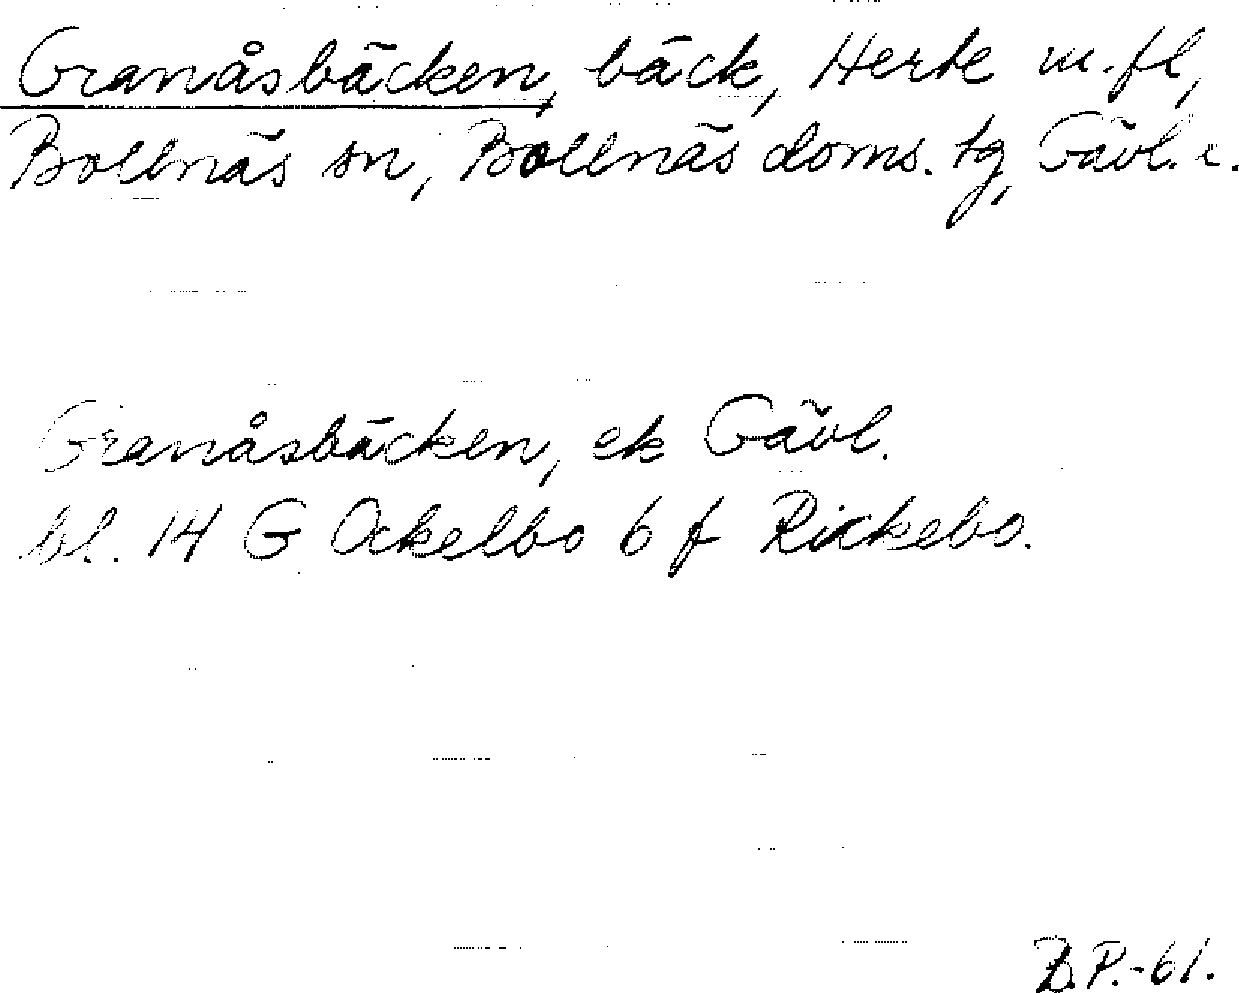 Granåsbäcken, bäck, Herte m.fl,
Bollnäs sn, Bollnäs doms. tg, Gävl. l.
Granåsbäcken, ek Gävl.
bl. 14 G Ockelbo 6 f Rickebo.
B.P.-61.